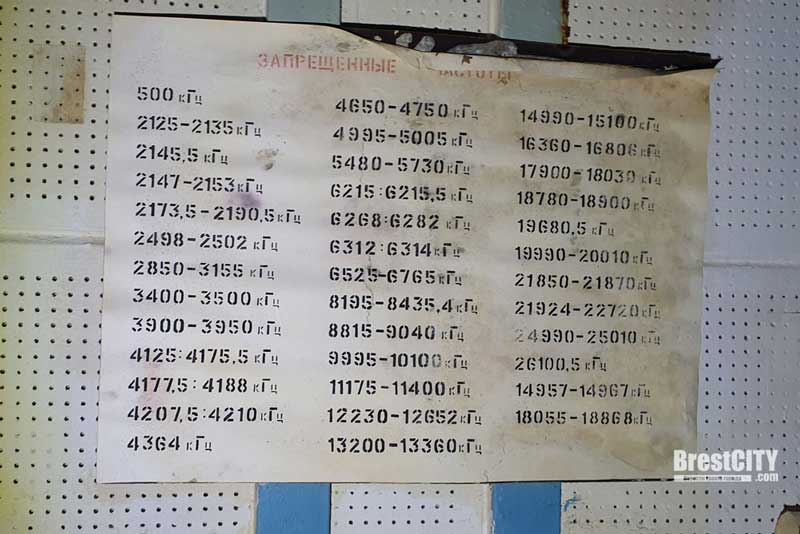 ЗАПРЕЩЕННЫЕ ЧАСТОТЫ
500 кГц
2125-2135 кГц
2145,5 кГц
2147-2153 кГц
2173,5-2190,5 кГц
2498-2502 кГц
2850-3155 кГц
3400-3500 кГц
3900-3950 кГц
4125:4175,5 кГц
4177,5:4188 кГц
4207,5:4210 кГц
4364 кГц
4650-4750 кГц
4995-5005 кГц
5480-5730 кГц
6215:6215,5 кГц
6268:6282 кГц
6312:6314 кГц
6525-6765 кГц
8195-8435,4 кГц
8815-9040 кГц
9995-10100 кГц
11175-11400 кГц
12230-12652 кГц
13200-13360 кГц
14990-15100 кГц
16360-16806 кГц
17900-18030 кГц
18780-18900 кГц
19680,5 кГц
19990-20010 кГц
21850-21870 кГц
21924-22720 кГц
24990-25010 кГц
26100,5 кГц
14957-14967 кГц
18055-18868 кГц
BrestCITY
.com